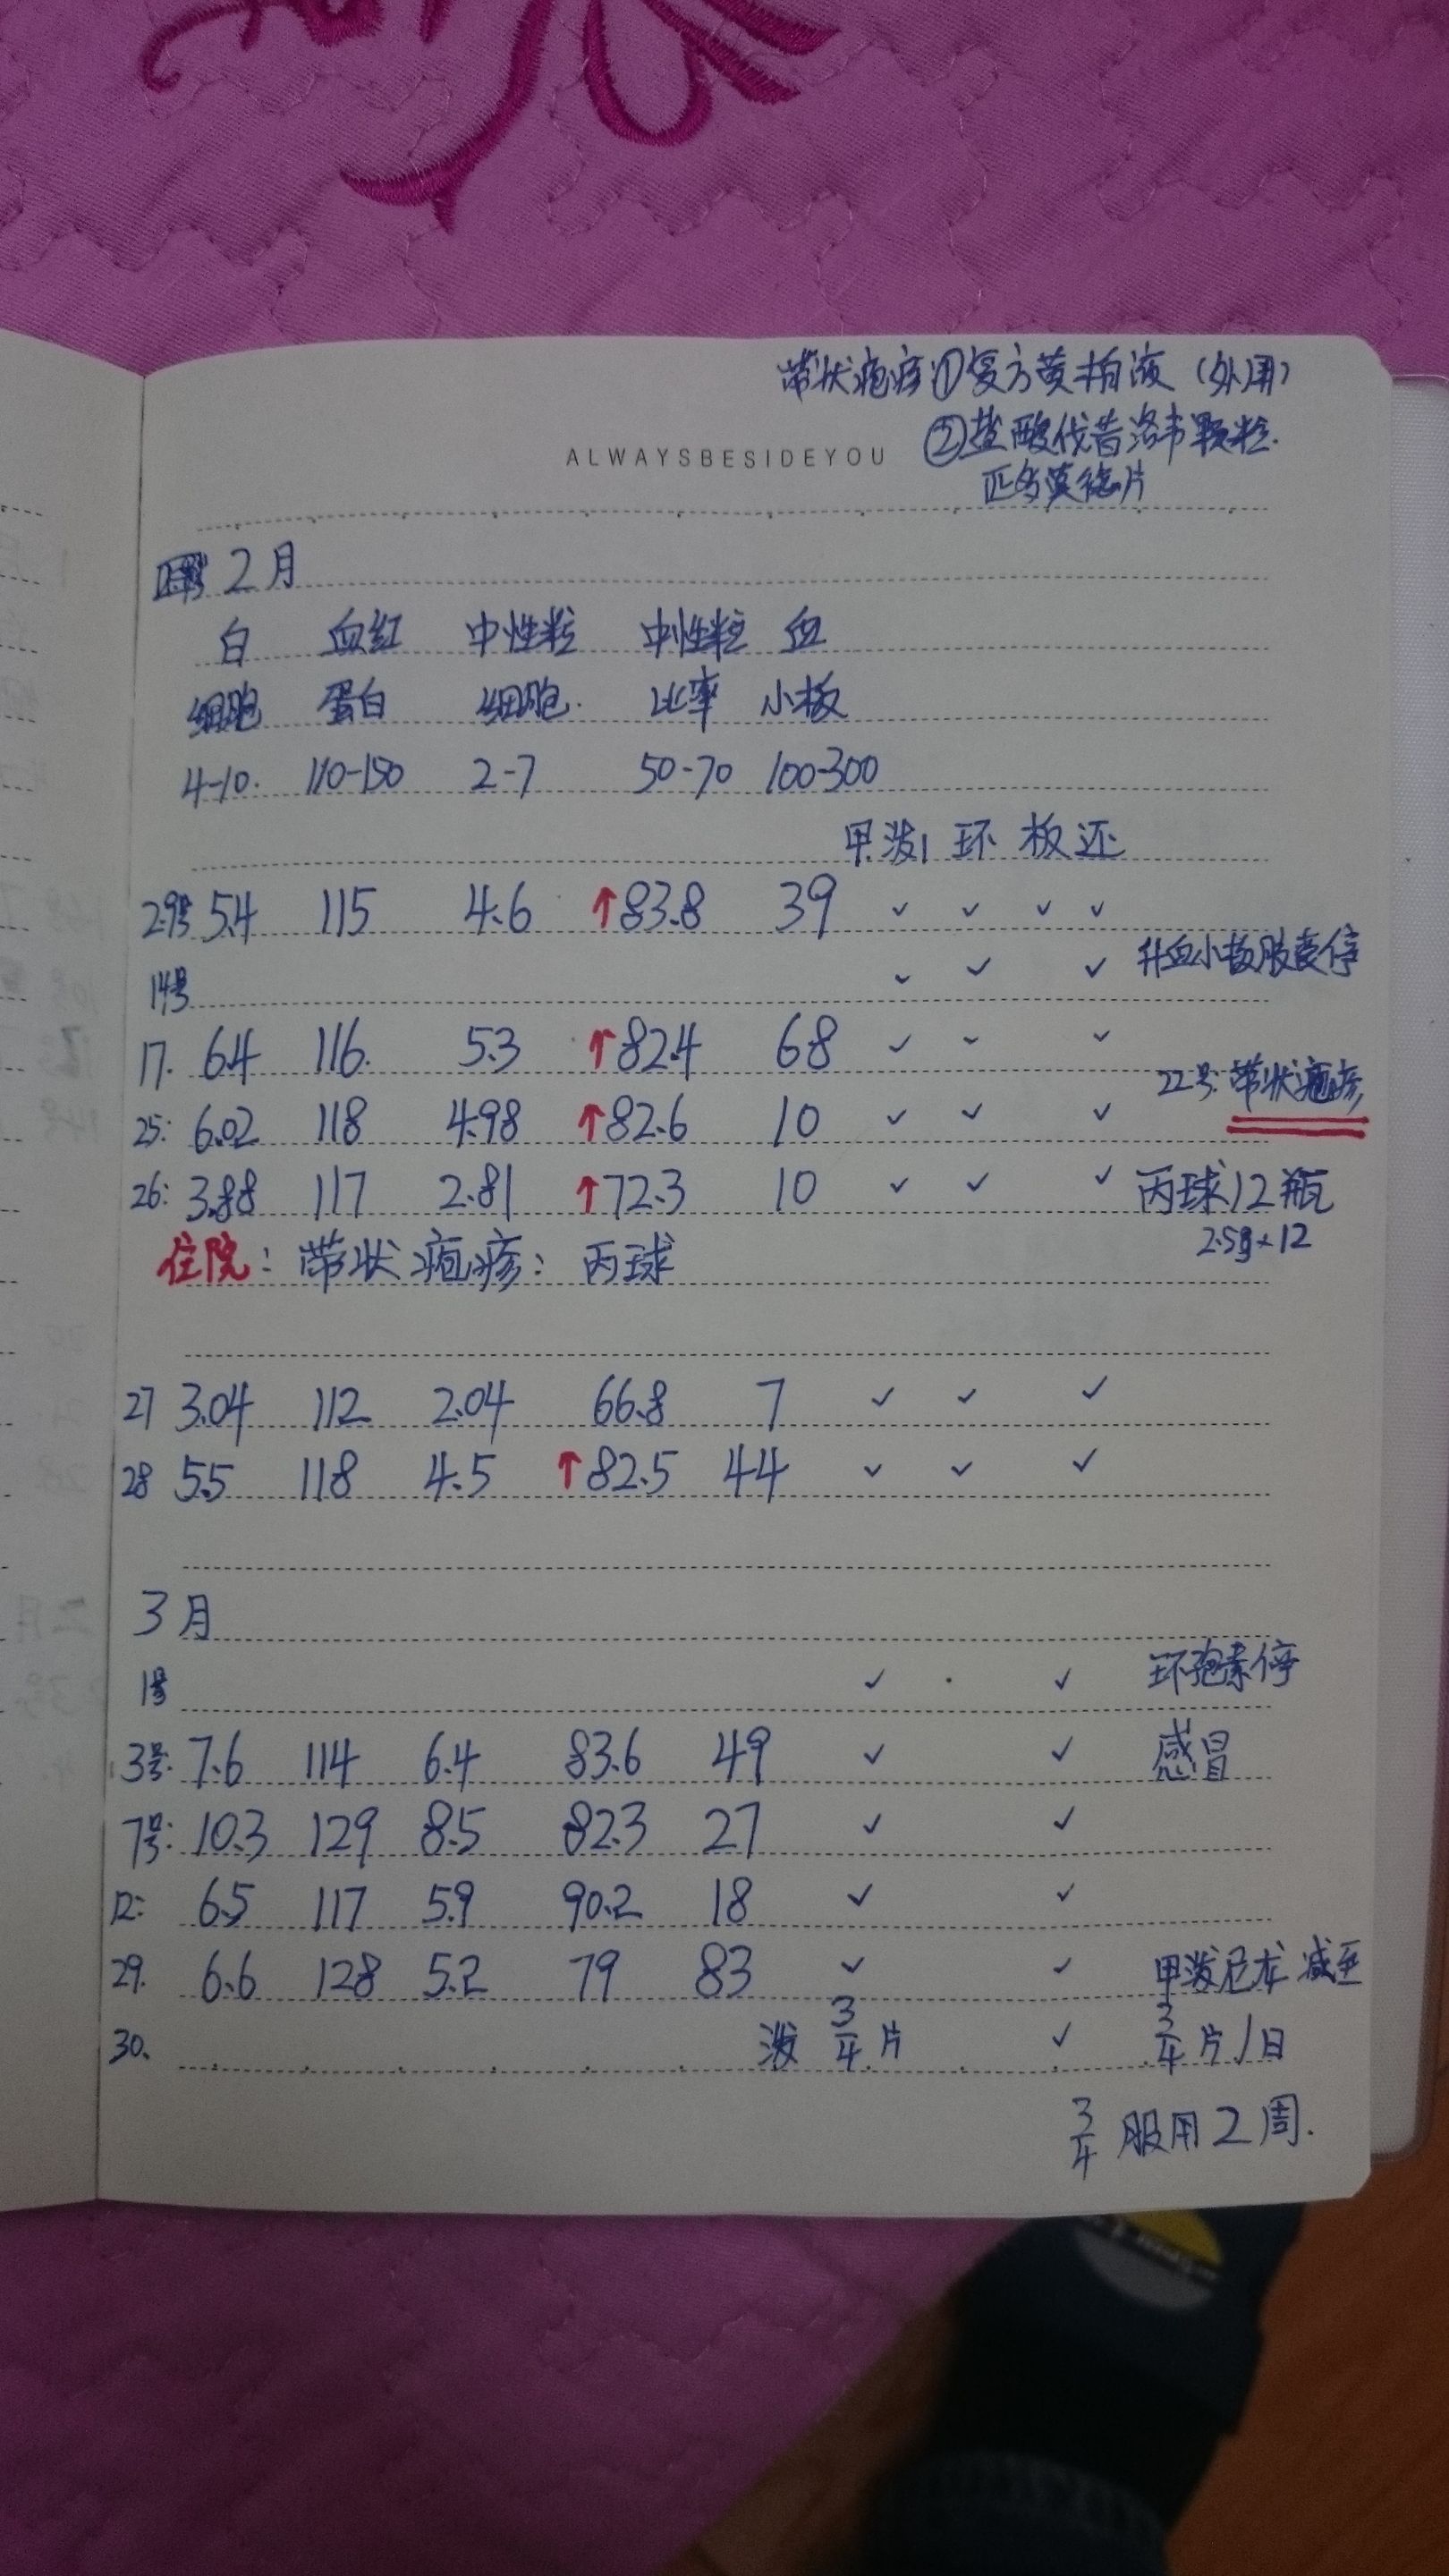 带状疱疹①复方黄柏液（外用）
②盐酸伐昔洛韦颗粒.
匹多莫德片
ALWAYSBESIDEYOU
2月
白 血红 中性粒 中性粒 血
细胞 蛋白 细胞. 比率 小板
4-10. 110-150 2-7 50-70 100-300
甲泼1 环 板 还
2.9号 5.4 115 4.6 ↑83.8 39 ✓ ✓ ✓ ✓
14号 ✓ ✓ ✓ 升血小板胶囊停
17. 6.4 116. 5.3 ↑82.4 68 ✓ ✓ ✓
22号: 带状疱疹
25: 6.02 118 4.98 ↑82.6 10 ✓ ✓ ✓
26: 3.88 117 2.81 ↑72.3 10 ✓ ✓ ✓ 丙球12瓶
2.5g×12
住院: 带状疱疹: 丙球
27 3.04 112 2.04 66.8 7 ✓ ✓ ✓
28 5.5 118 4.5 ↑82.5 44 ✓ ✓ ✓
3月
1号 ✓ · ✓ 环孢素停
3号: 7.6 114 6.4 83.6 49 ✓ ✓ 感冒
7号: 10.3 129 8.5 82.3 27 ✓ ✓
12: 6.5 117 5.9 90.2 18 ✓ ✓
29. 6.6 128 5.2 79 83 ✓ ✓ 甲泼尼龙 减至
30. 泼 3/4 片 ✓ 3/4 片/日
3/4 服用2周.